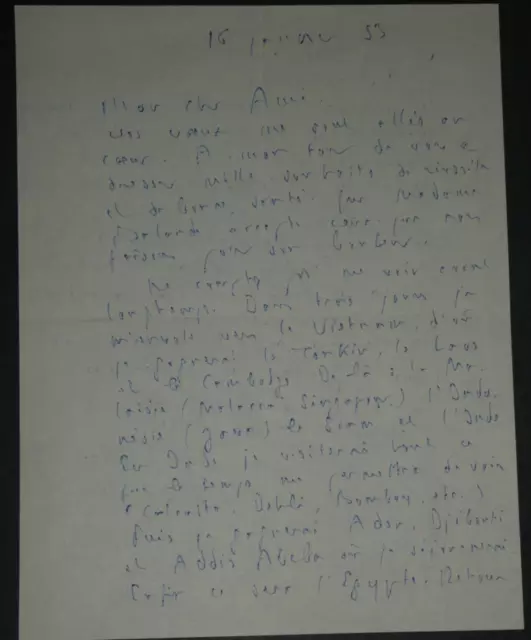 16 janvier 53
Mon cher Ami.
Vos vœux me sont allés au
cœur. A mon tour de vous
adresser mille souhaits de réussite
et de bonne santé. Que Madame
accepte ceux que nous
faisons pour son bonheur.
Ne comptez pas me voir avant
longtemps. Dans trois jours je
m'envole vers le Vietnam, d'où
je gagnerai le Tonkin, le Laos
et le Cambodge. De là à la Ma-
laisie (Malacca, Singapour) l'Indo-
nésie (Java) la et l'Inde
En Inde je visiterai tout ce
que le temps me permettra de voir
(Calcutta, Delhi, Bombay, etc.)
Puis je gagnerai Aden, Djibouti
et Addis Abeba où je séjournerai
Enfin ce sera l'Egypte. Retour